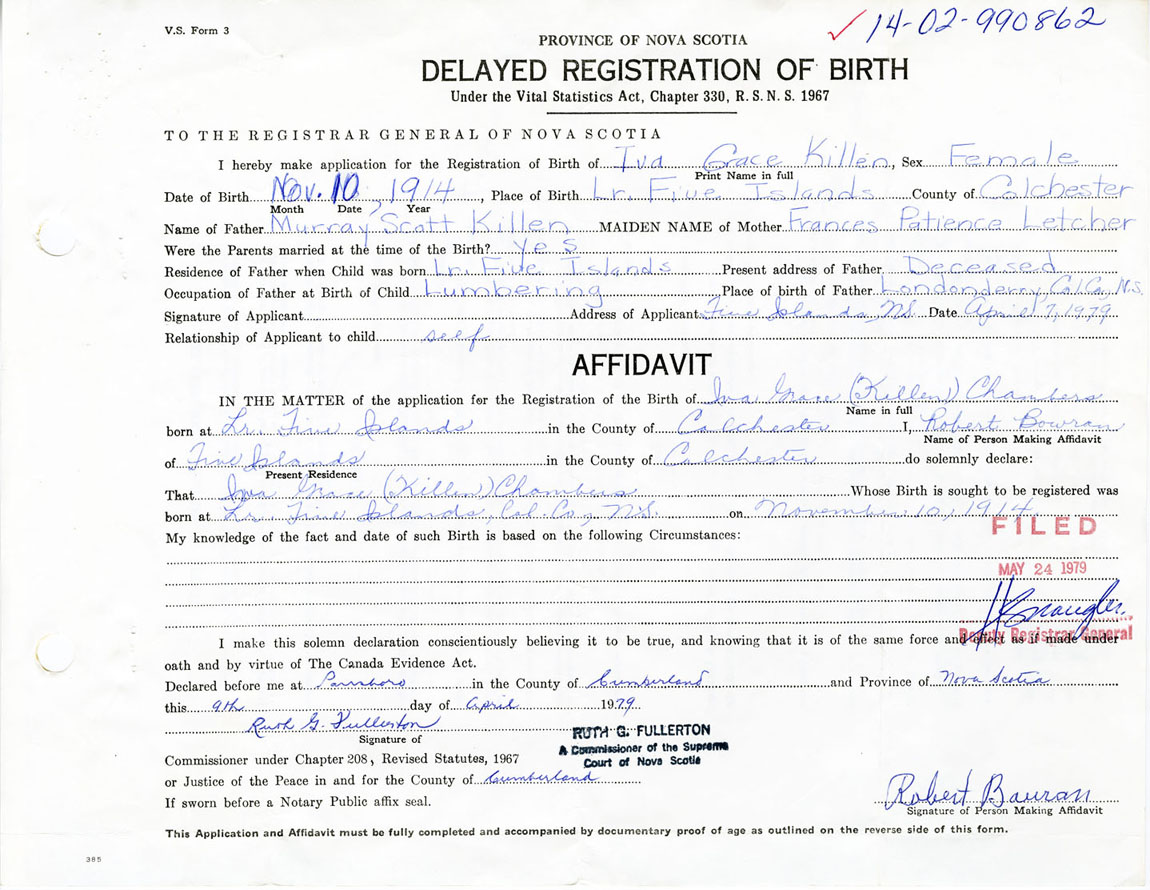 V.S. Form 3
14-02-990862
PROVINCE OF NOVA SCOTIA
DELAYED REGISTRATION OF BIRTH
Under the Vital Statistics Act, Chapter 330, R.S.N.S. 1967
TO THE REGISTRAR GENERAL OF NOVA SCOTIA
I hereby make application for the Registration of Birth of Iva Grace Killen, Sex Female
Print Name in full
Date of Birth Nov. 10, 1914, Place of Birth Lr. Five Islands County of Colchester
Month Date Year
Name of Father Murray Scott Killen MAIDEN NAME of Mother Frances Patience Letcher
Were the Parents married at the time of the Birth? Yes
Residence of Father when Child was born Lr. Five Islands Present address of Father Deceased
Occupation of Father at Birth of Child Lumbering Place of birth of Father Londonderry, Col. Co., N.S.
Signature of Applicant Address of Applicant Five Islands, N.S. Date April 7, 1979
Relationship of Applicant to child self
AFFIDAVIT
IN THE MATTER of the application for the Registration of the Birth of Iva Grace (Killen) Chambers
Name in full
born at Lr. Five Islands in the County of Colchester I, Robert Bowran
Name of Person Making Affidavit
of Five Islands in the County of Colchester do solemnly declare:
Present Residence
That Iva Grace (Killen) Chambers Whose Birth is sought to be registered was
born at Lr. Five Islands, Col. Co., N.S. on November 10, 1914.
FILED
My knowledge of the fact and date of such Birth is based on the following Circumstances:
MAY 24 1979
I make this solemn declaration conscientiously believing it to be true, and knowing that it is of the same force and effect as if made under
Deputy Registrar General
oath and by virtue of The Canada Evidence Act.
Declared before me at Parrsboro in the County of Cumberland and Province of Nova Scotia
this 9th day of April 1979
Ruth G. Fullerton
Signature of
RUTH G. FULLERTON
A Commissioner of the Supreme
Court of Nova Scotia
Commissioner under Chapter 208, Revised Statutes, 1967
or Justice of the Peace in and for the County of Cumberland
If sworn before a Notary Public affix seal.
Robert Bowran
Signature of Person Making Affidavit
This Application and Affidavit must be fully completed and accompanied by documentary proof of age as outlined on the reverse side of this form.
385